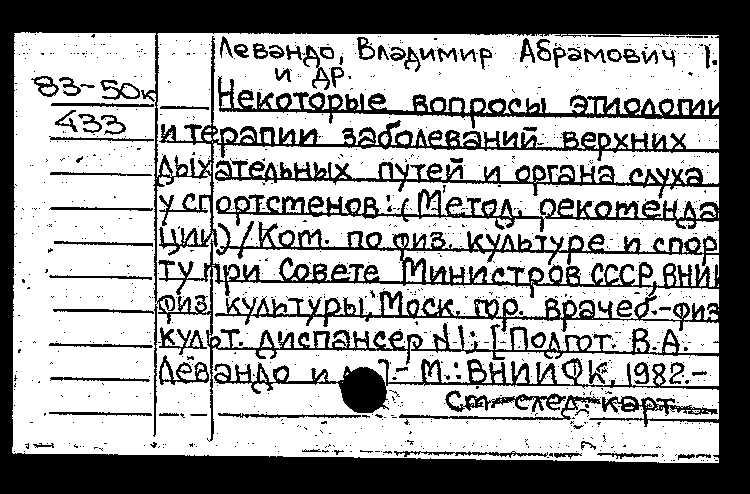 Левандо, Владимир Абрамович 1.
и др.
83-50к
Некоторые вопросы этиологии
433
и терапии заболеваний верхних
дыхательных путей и органа слуха
у спортстенов: (Метод. рекотенда
ции) / Ком. по физ. культуре и спор
ту при Совете Министров СССР, ВНИИ
физ. культуры, Моск. гор. врачеб.-физ
культ. диспансер N1; [Подгот. В.А.
Левандо и ].- М.: ВНИИФК, 1982.-
См. след. карт